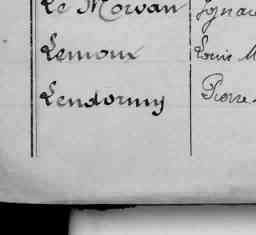 Le Morvan Ignace
Lemoux Louis M
Lendormy Pierre